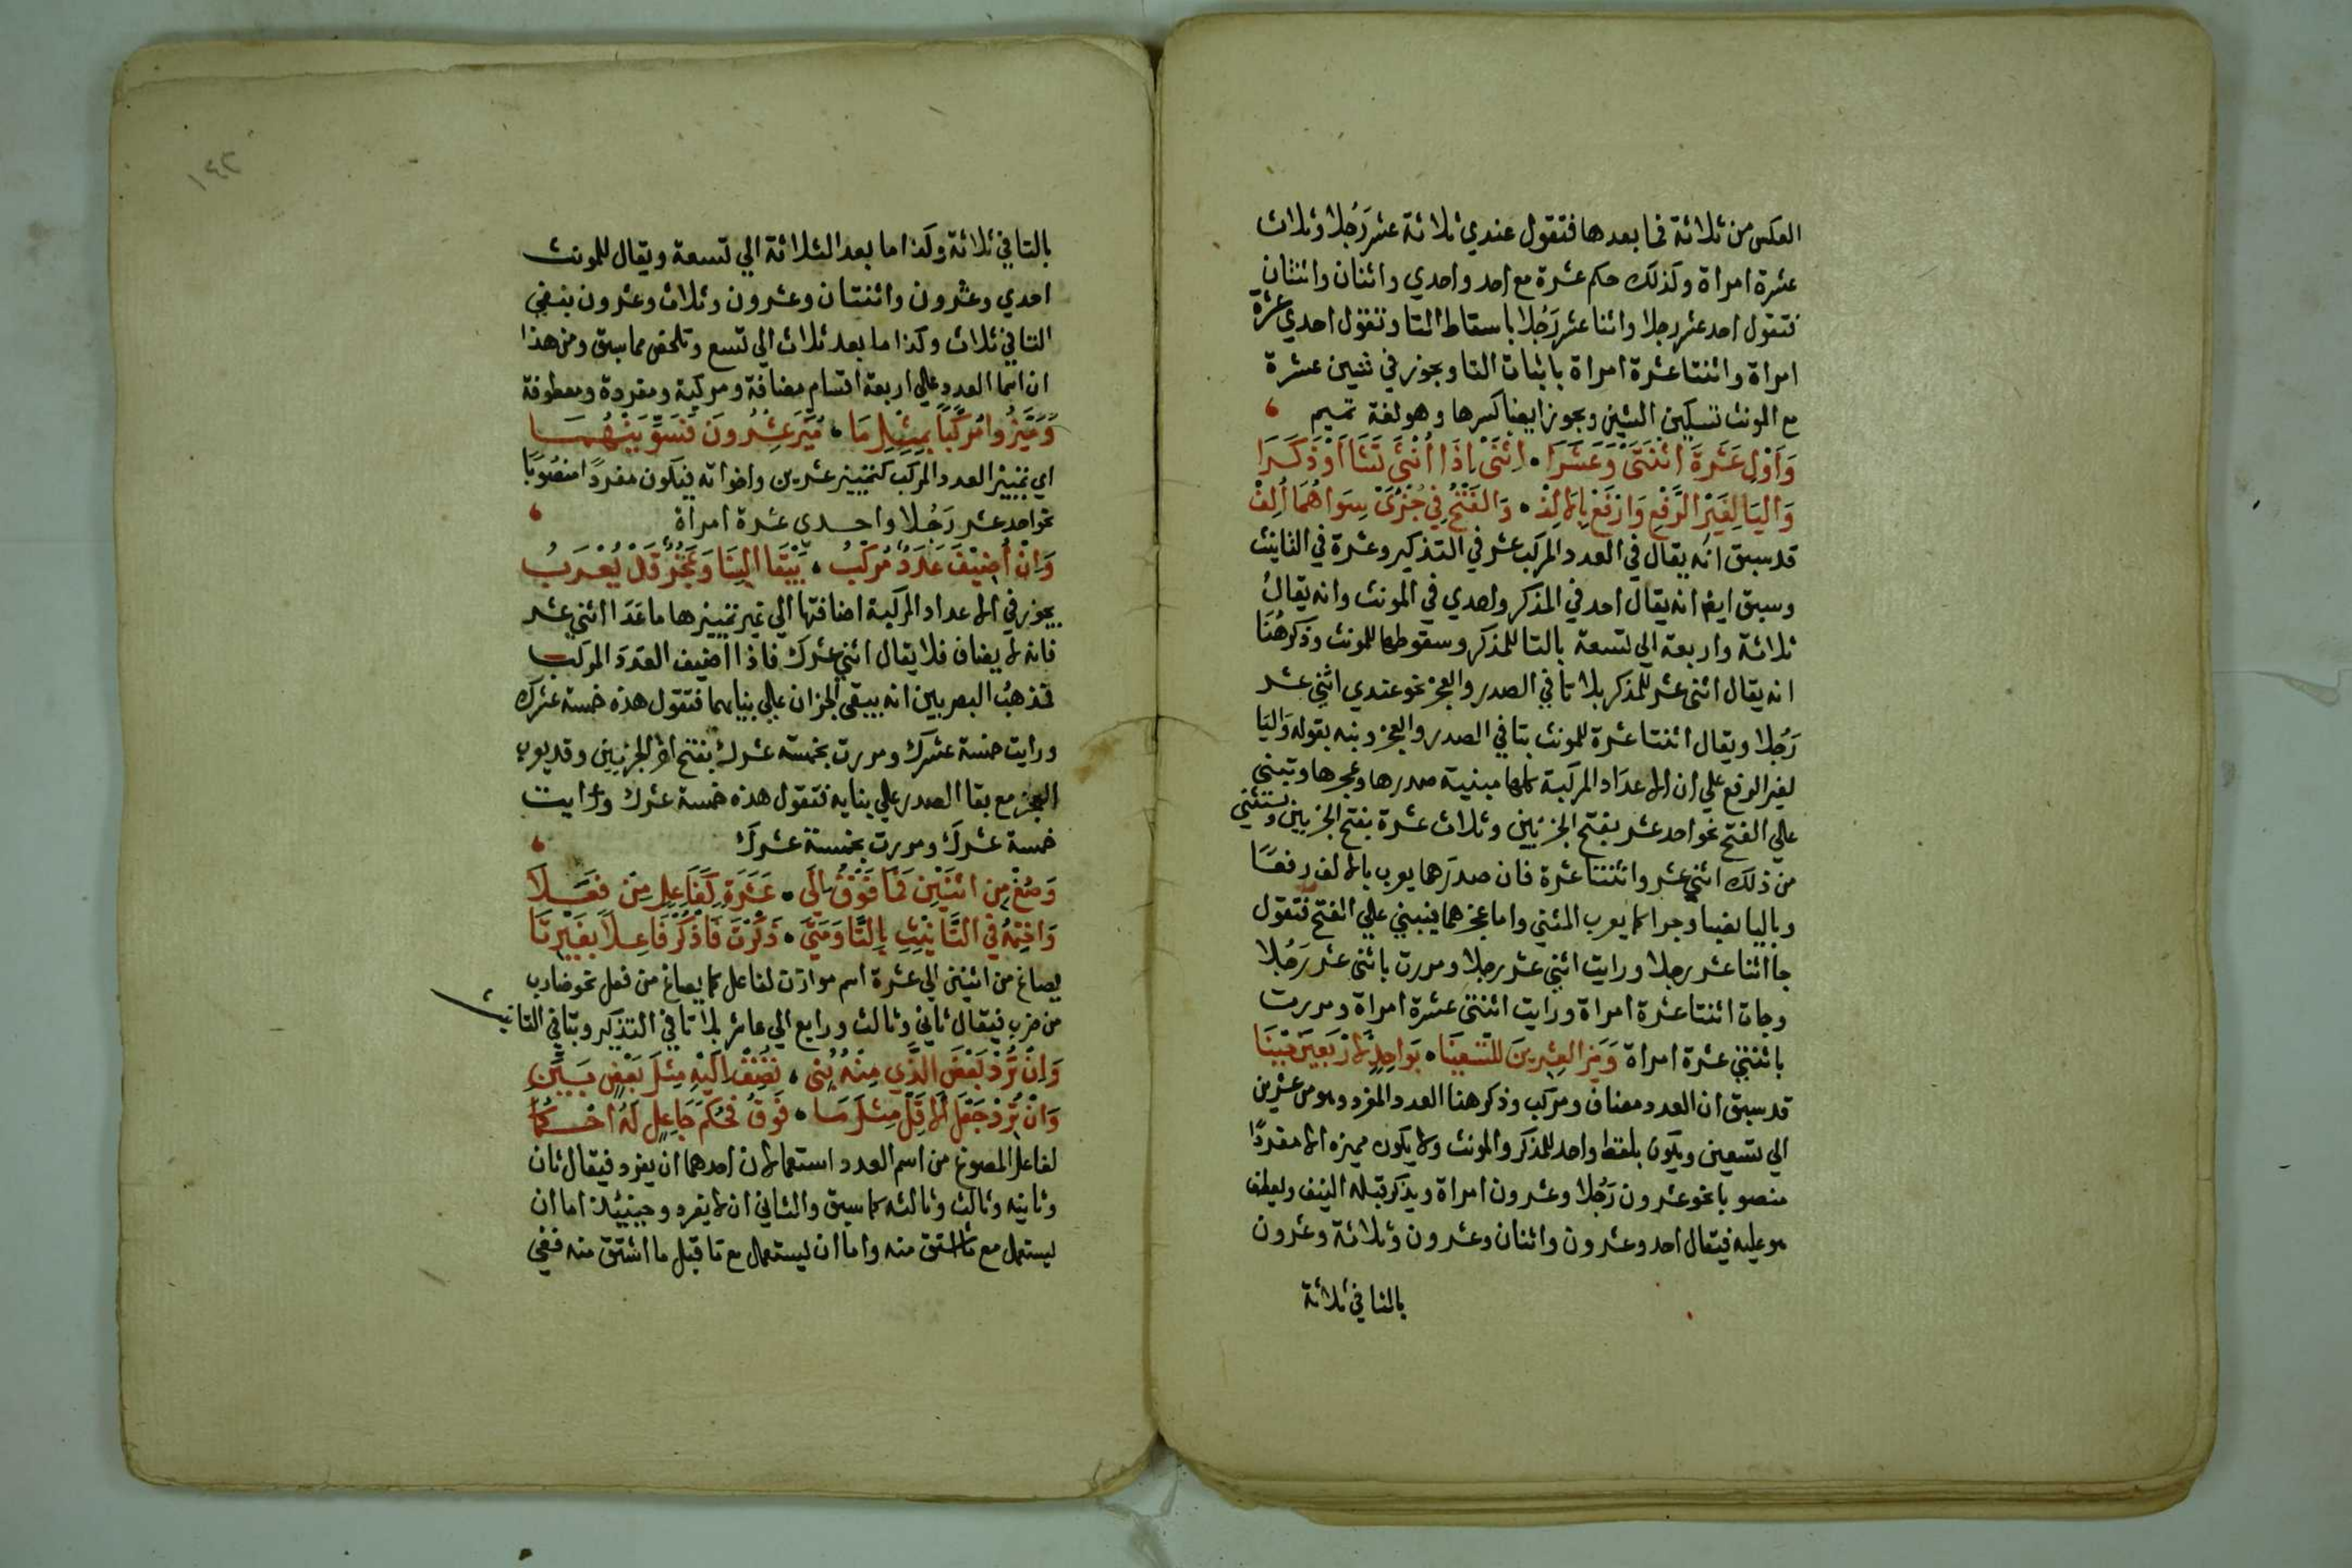 العكس من ثلاثة فما بعدها فتقول عندي ثلاثة عشر رَجُلا وثلاث
عشرة امراة وكذلك حكم عشرة مع احد واحدي واثنان واثنتان
فتقول احد عشر رجلا واثنا عشر رَجُلا باسقاط التا وتقول احدي عشرة
امراة واثنتا عشرة امراة باثبات التا ويجوز في شين عشرة
مع المونث تسكين الشين ويجوز ايضا كسرها وهو لغة تميم
وَاَوْلِ عَشْرَةَ اثْنَتَىْ وَعَشَرَا • اِثْنَىْ اِذَا اُنْثَى تَشَا اَوْ ذَكَرَا
وَاليَا لِغَيْرِ الرَّفْعِ وَارْفَعْ بِالالِفْ • وَالفَتْحُ فِي جُزْئَىْ سِوَاهُمَا اُلِفْ
قد سبق انه يقال في العدد المركب عشر في التذكير وعشرة في التانيث
وسبق ايضا انه يقال احد في المذكر واحدي في المونث وانه يقالُ
ثلاثة واربعة الي تسعة بالتا للمذكر وسقوطها للمونث وذكر هُنَا
انه يقال اثنى عشر للمذكر بلا تا في الصدر والعجز نحو عندي اثني عشر
رَجُلا ويقال اثنتا عشرة للمونث بتا في الصدر والعجز ونبه بقوله وَاليَا
لغير الرفع علي ان الاعدَاد المركبة كلها مبنية صدرها وعجزها وتبني
علي الفتح نحو احد عشر بفتح الجزيين وثلاث عشرة بفتح الجزيين ويستثني
من ذلك اثني عشر واثنتا عشرة فان صدرَهما يعرب بالالف رفعًا
وباليا نصبا وجرا كما يعرب المثني واما عجزهما فيبني علي الفتح فتقول
جا اثنا عشر رجلا ورايت اثني عشر رجلا ومررت باثنى عشر رَجُلا
وجات اثنتا عشرة امراة ورايت اثنتى عشرة امراة ومررت
باثنتي عشرة امراة وَمَيِّزِ العِشْرِينَ لِلتِّسْعِينَا • بِوَاحِدٍ كَارْبَعِينَ حِينَا
قد سبق ان العدد مضاف ومركب وذكر هنا العدد المفرد وهو من عشرين
الي تسعين ويكون بلفظ واحد للمذكر والمونث ولا يكون مميزه الا مفردًا
منصوبا نحو عشرون رَجُلا وعشرون امراة ويذكر قبله النيف ويعطف
هو عليه فيقال احد وعشرون واثنان وعشرون وثلاثة وعشرون
بالتا في ثلاثة
بالتا في ثلاثة وكذا ما بعد الثلاثة الي تسعة ويقال للمونث
احدي وعشرون واثنتان وعشرون وثلاث وعشرون بنفي
التا في ثلاث وكذا ما بعد ثلاث الي تسع وتلخص مما سبق ومن هذا
ان اسما العدد علي اربعة اقسام مضافة ومركبة ومفردة ومعطوفة
وَمَيَّزُوا مُرَكَّبًا بِمِثْلِ مَا • مُيِّزَ عِشْرُونَ فَسَوِّيَنْهُمَا
اي تمييز العدد المركب كتمييز عشرين واخواته فيكون مفردًا منصُوبًا
نحو احد عشر رَجُلا واحدي عشرة امراة
وَانْ اُضِيْفَ عَدَدٌ مُرَكَّبُ • يَبْقَا البِنَا وَعَجُزٌ قَدْ يُعْرَبُ
يجوز في الاعداد المركبة اضافتها الي غير تمييزها ما عَدَا اثني عشر
فانه لا يضاف فلا يقال اثني عشرك فاذا اضيف العَدَدَ المركب
فمذهبُ البصريين انه يبقي الجزان علي بنايهما فتقول هذه خمسة عشرك
ورايت خمسة عشرك ومررت بخمسة عشرك بفتح اخر الجزيين وقد يعرب
العجز مع بقا الصدر علي بنايه فتقول هذه خمسة عشرك ورايت
خمسة عشرك ومررت بخمسة عشرك
وَصُغْ مِن اثْنَيْنِ فَمَا فَوْقُ اِلَى • عَشَرَةٍ كَفَاعِلٍ مِن فَعَلَا
وَاخْتِمْهُ فِي التَّانِيْثِ بِالتَّا وَمَتَى • ذَكَّرْتَ فَاذْكُرْ فَاعِلًا بِغَيْرِ تَا
يصاغ من اثنين الي عشرة اسم موازن لفاعل كما يصاغ من فعل نحو ضارب
من ضرب فيقال ثاني وثالث ورابع الي عاشر بلا تا في التذكير وبتا في التانيث
وَاِنْ تُرِدْ بَعْضَ الَّذِي مِنْهُ بُنِى • تُضِفْ اِلَيْهِ مِثْلَ بَعْضٍ بَيِّنِ
وَانْ تُرِدْ جَعْلَ الاقَلِّ مِثْلَ مَا • فَوْقُ فَحُكْمَ جَاعِلٍ لَهُ احْكُمَا
لفاعل المصوغ من اسم العدد استعمالان احدهما ان يفرد فيقال ثان
وثانيه وثالث وثالثه كما سبق والثاني ان لا يفرد وحينئذ اما ان
يستعمل مع ما اشتق منه واما ان يستعمل مع ما قبل ما اشتق منه ففي